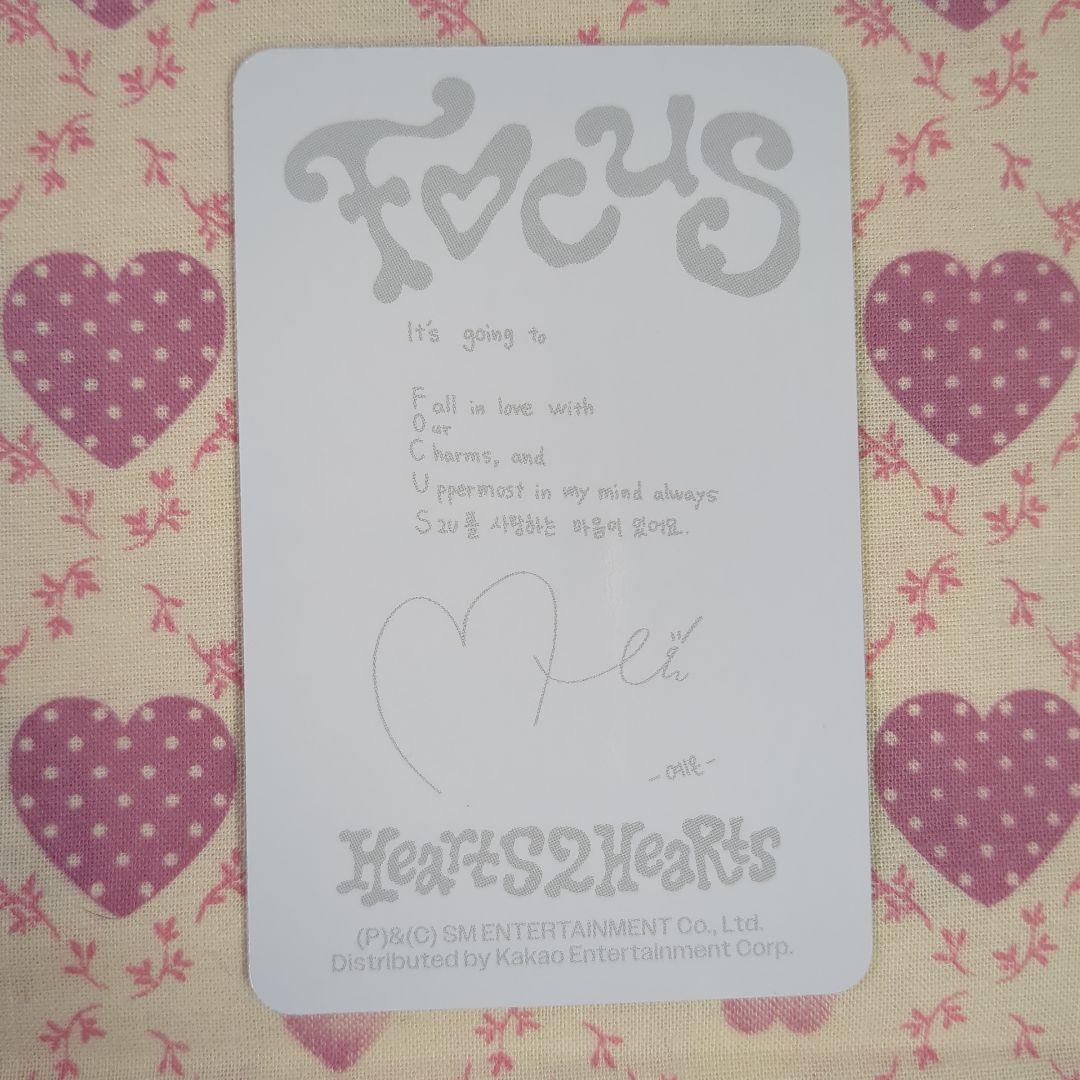 FOCUS
It's going to
Fall in love with
Our
Charms, and
Uppermost in my mind always
S2U를 사랑하는 마음이 있어요.
-예온-
HeartS2HeaRts
(P)&(C) SM ENTERTAINMENT Co., Ltd.
Distributed by Kakao Entertainment Corp.